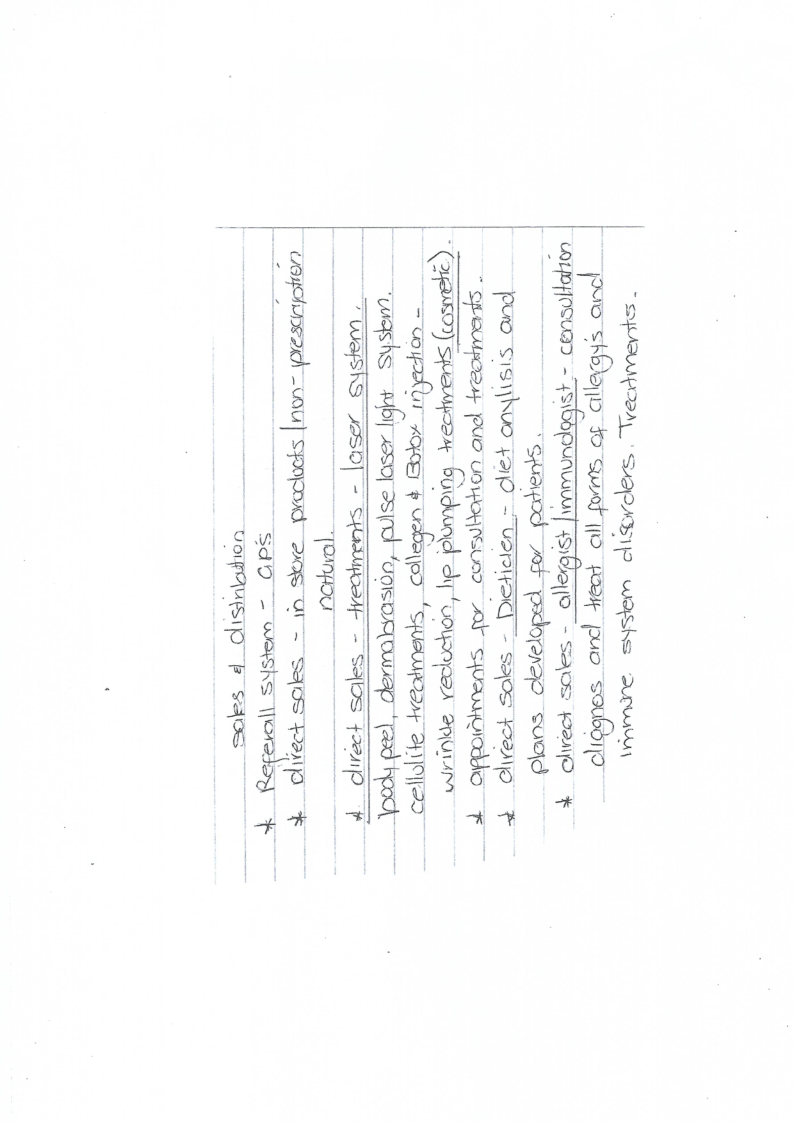 sales & distribution
* Referall system - GPS
* direct sales - in store products / non-prescription
natural.
* direct sales - treatments - laser system.
body peel, dermabrasion, pulse laser light system.
cellulite treatments, collegen & Botox injection -
wrinkle reduction, lip plumping treatments (cosmetic).
* appointments for consultation and treatments.
* direct sales - Dieticien - diet anylisis and
plans developed for patients.
* direct sales - allergist / immunologist - consultation
diagnos and treat all forms of allergy's and
immune system disorders. Treatments.